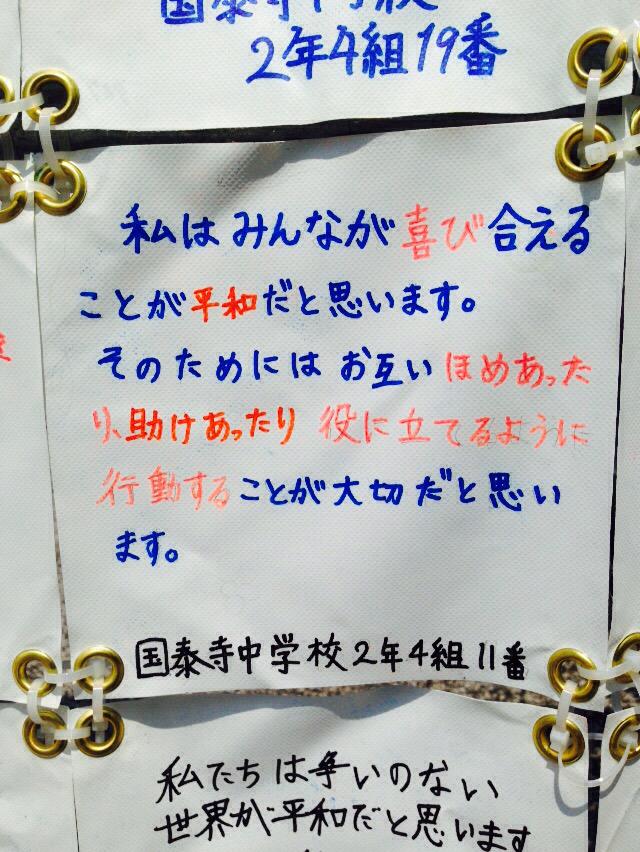 国泰寺中学校
2年4組19番
私はみんなが喜び合える
ことが平和だと思います。
そのためにはお互いほめあった
り、助けあったり 役に立てるように
行動することが大切だと思い
ます。
国泰寺中学校2年4組11番
私たちは争いのない
世界が平和だと思います